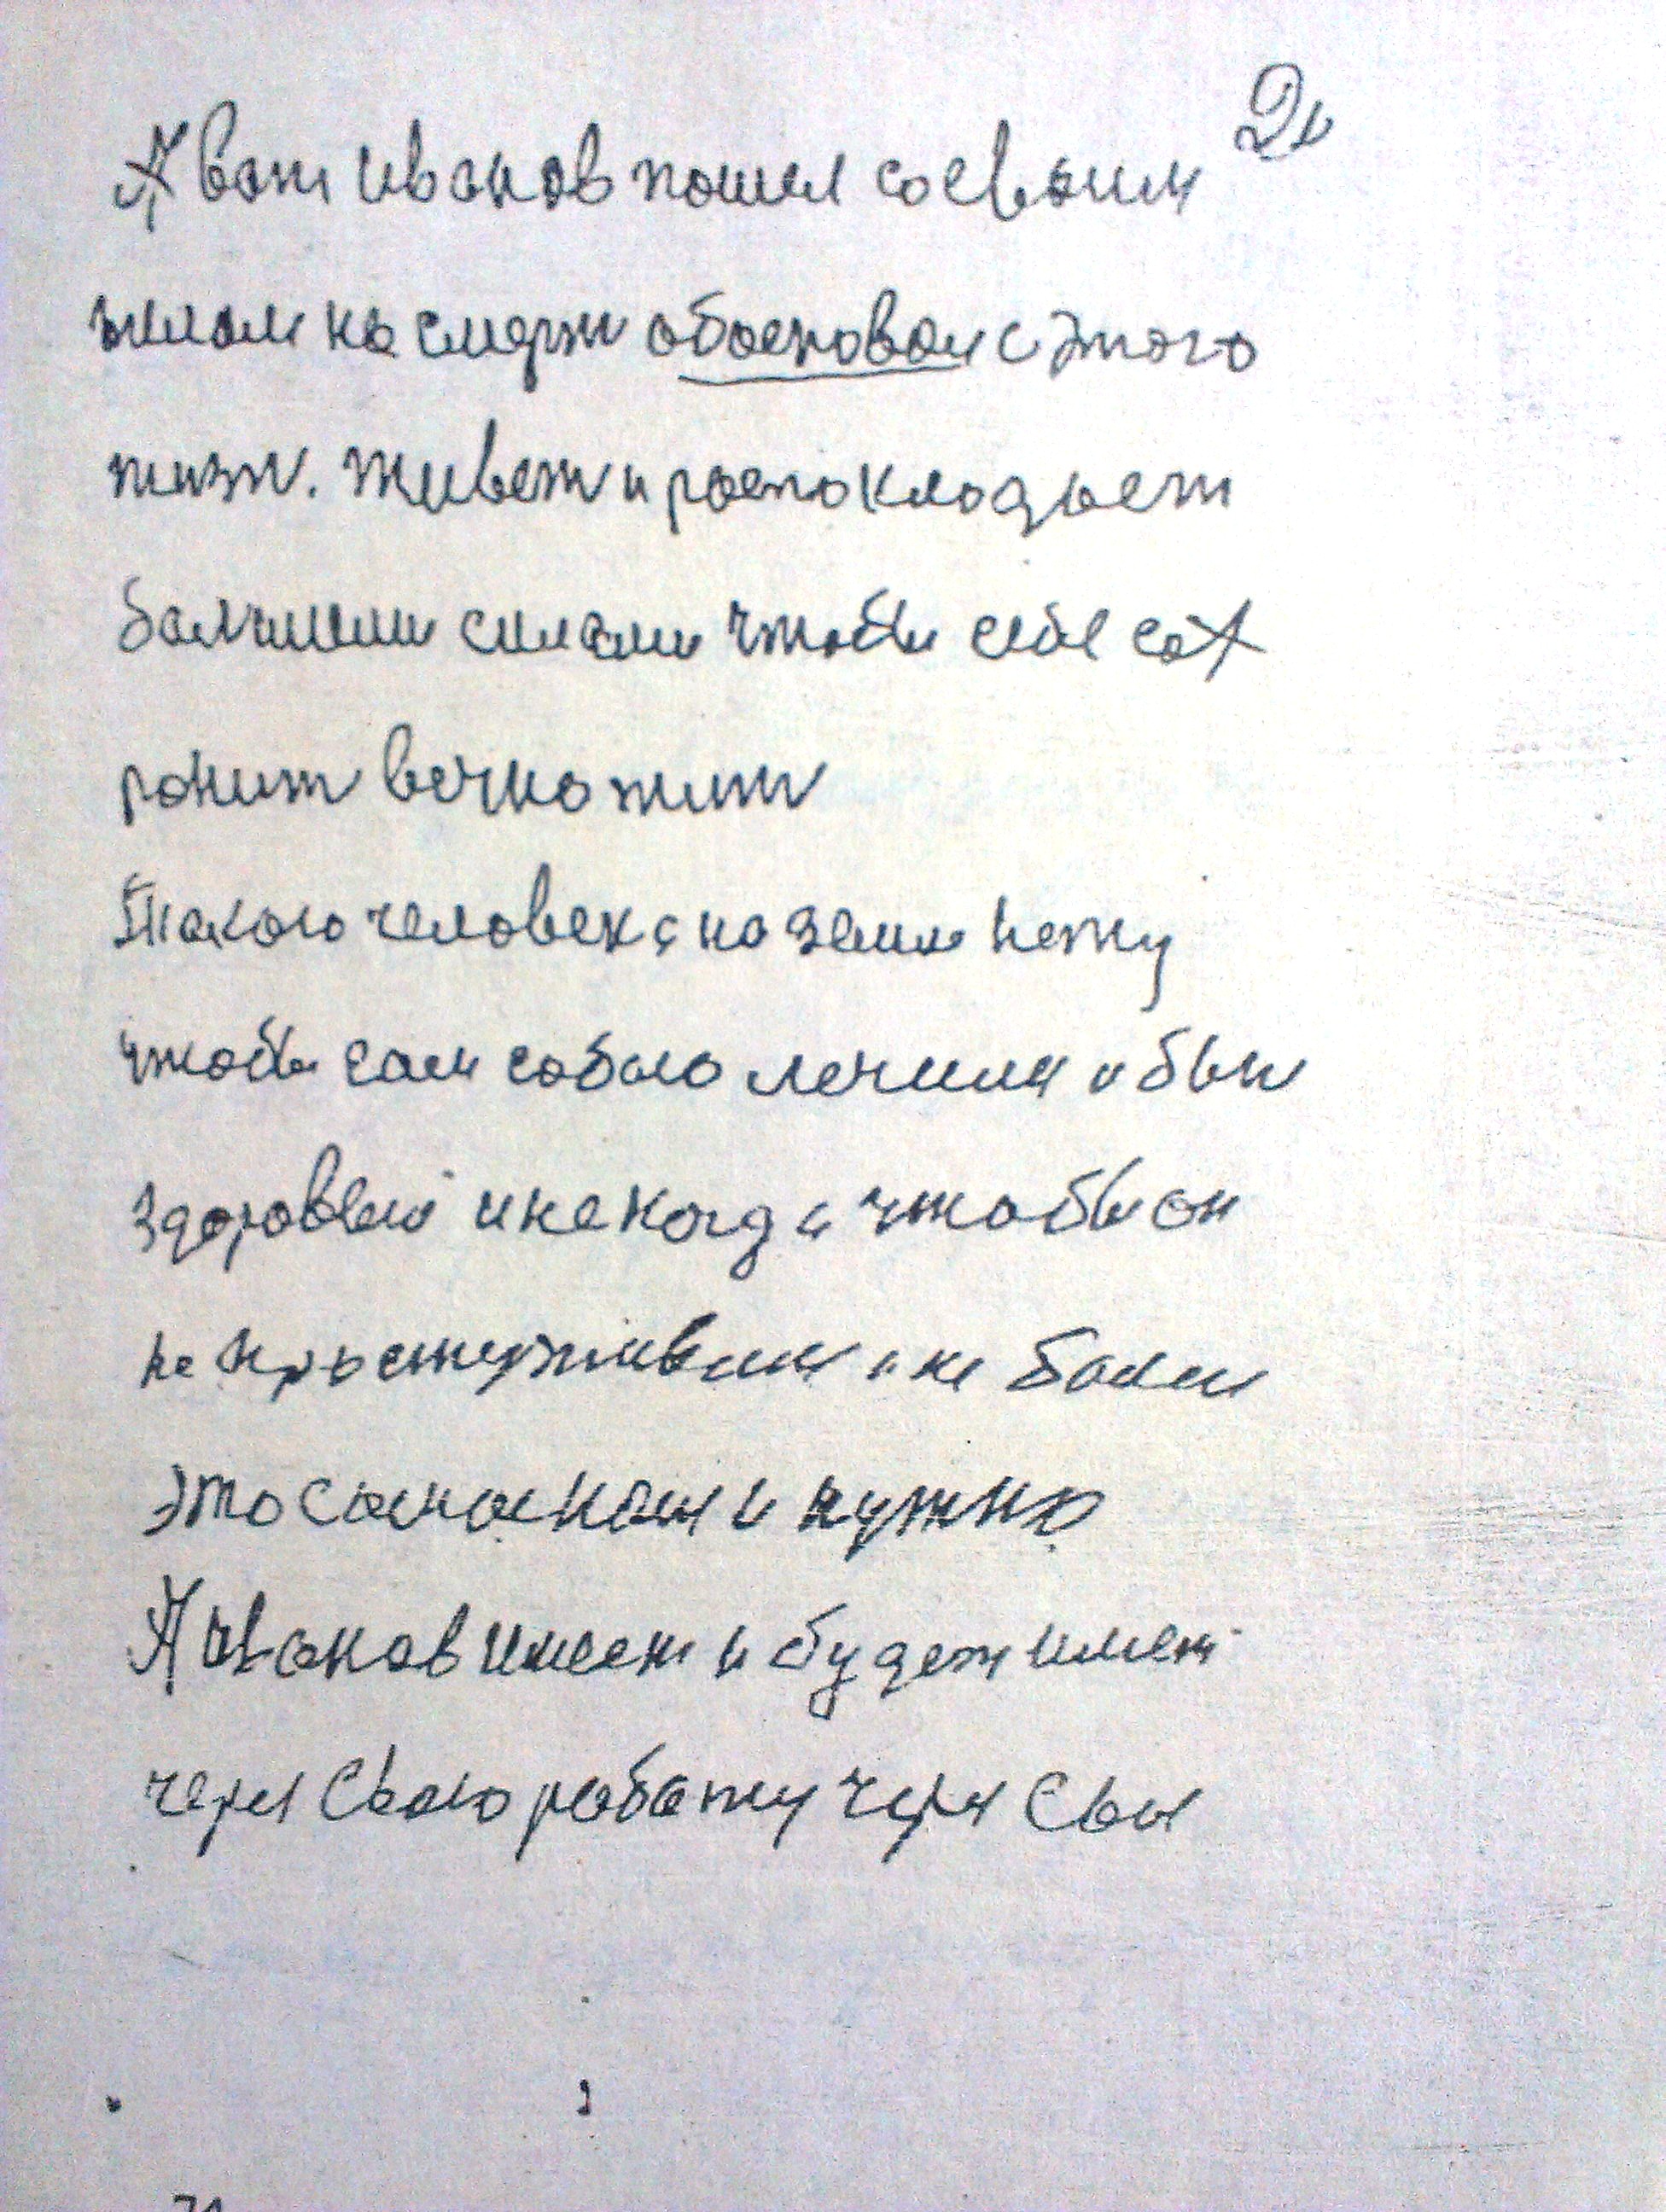 2
А вот Иванов пошел со своим
телом на смерт обосновал с этого
жизн. Живет и роспокладает
болшими силами чтобы себе сох
ронит вечно жит
Такого человека на земли нету
чтобы сам собою лечили и был
здоровый и некогда чтобы он
не простуживали и не болел
это самое нам и нужно
А Иванов имеет и будет имет
через свою работу через свои